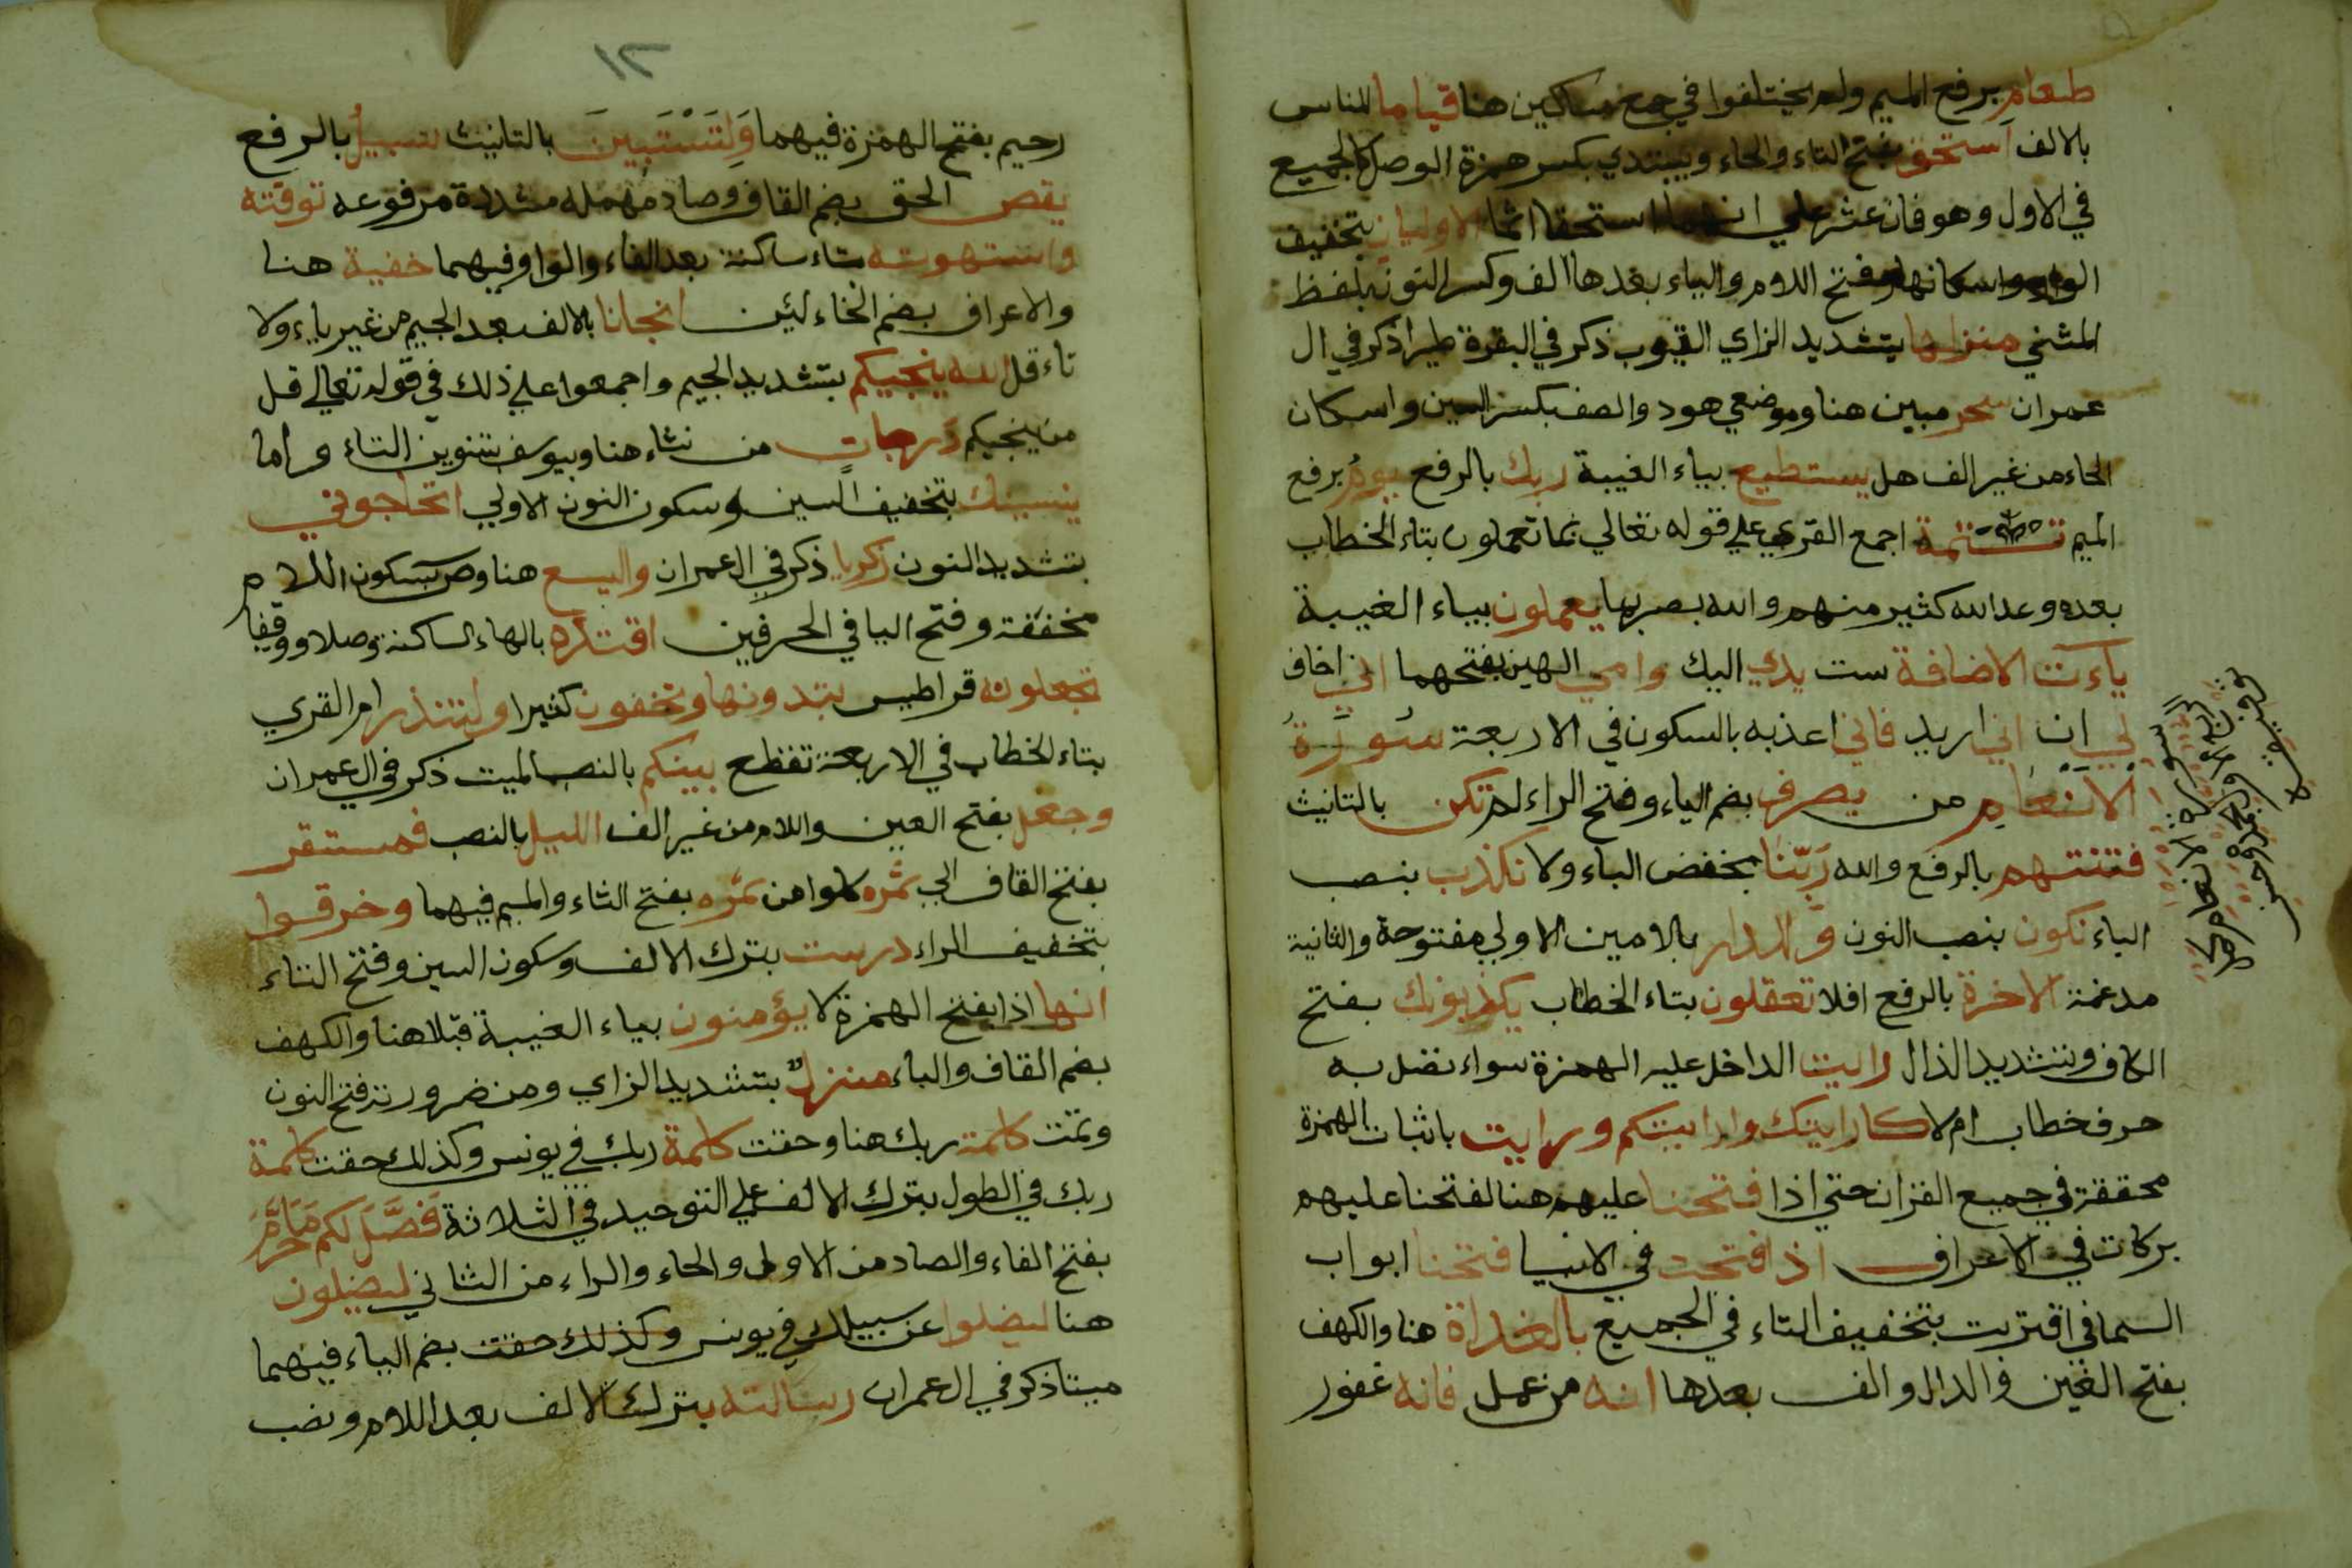 طعام برفع الميم ولم يختلفوا في جمع مساكين هنا قياما للناس
بالالف استحق بفتح التاء والحاء ويبتدي بكسر همزة الوصل كالجميع
في الاول وهو فان عثر علي انهما استحقا اثما الاوليان بتخفيف
الواو واسكانها وفتح اللام والياء بعدها الف وكسر النون بلفظ
المثني منزلها بتشديد الزاي الغيوب ذكر في البقرة طيرا ذكر في ال
عمران سحر مبين هنا وموضعي هود والصف بكسر السين واسكان
الحاء من غير الف هل يستطيع بياء الغيبة ربك بالرفع يوم برفع
الميم تتمة اجمع القري علي قوله تعالي بما تعملون بتاء الخطاب
بعده وعد الله كثير منهم والله بصير بما يعملون بياء الغيبة
ياءت الاضافة ست يدي اليك وامي الهين بفتحهما اني اخاف
لي ان اني اريد فاني اعذبه بالسكون في الاربعة سورة
الانعام من يصرف بضم الياء وفتح الراء لم تكن بالتانيث
فتنتهم بالرفع والله ربنا بخفض الباء ولا نكذب بنصب
الباء نكون بنصب النون وللدار بلامين الاولي مفتوحة والثانية
مدغمة الاخرة بالرفع افلا تعقلون بتاء الخطاب يكذبونك بفتح
الكاف وتشديد الذال رايت الداخل عليه الهمزة سواء تصل به
حرف خطاب ام لا كارايتك وارايتكم ورايت باثبات الهمزة
محققة في جميع القران حتي اذا فتحنا عليهم هنا لفتحنا عليهم
بركات في الاعراف اذا فتحت في الانبيا فتحنا ابواب
السما في اقتربت بتخفيف التاء في الجميع بالغداة هنا والكهف
بفتح الغين والدال والف بعدها انه من عمل فانه غفور
سورة الانعام
١٢
رحيم بفتح الهمزة فيهما ولتستبين بالتانيث سبيل بالرفع
يقص الحق بضم القاف وصاد مهملة مشددة مرفوعه توفته
واستهوته بتاء ساكنة بعد الفاء والواو فيهما خفية هنا
والاعراف بضم الخاء لئن انجانا بالالف بعد الجيم من غير ياء ولا
تاء قل الله ينجيكم بتشديد الجيم واجمعوا علي ذلك في قوله تعالي قل
من ينجيكم درجات من نشاء هنا وبيوسف بتنوين التاء واما
ينسينك بتخفيف السين وسكون النون الاولي اتحاجوني
بتشديد النون زكريا ذكر في ال عمران واليسع هنا وص بسكون اللام
مخففة وفتح اليا في الحرفين اقتده بالهاء الساكنة وصلا ووقفا
تجعلونه قراطيس تبدونها وتخفون كثيرا ولتنذر ام القري
بتاء الخطاب في الاربعة تقطع بينكم بالنصب الميت ذكر في ال عمران
وجعل بفتح العين واللام من غير الف الليل بالنصب فمستقر
بفتح القاف الي ثمره كلوا من ثمره بفتح الثاء والميم فيهما وخرقوا
بتخفيف الراء درست بترك الالف وسكون السين وفتح التاء
انها اذا بفتح الهمزة لا يؤمنون بياء الغيبة قبلا هنا والكهف
بضم القاف والباء منزل بتشديد الزاي ومن ضرورته فتح النون
وتمت كلمة ربك هنا وحقت كلمة ربك في يونس وكذلك حقت كلمة
ربك في الطول بترك الالف علي التوحيد في الثلاثة فصل لكم ما حرم
بفتح الفاء والصاد من الاولى والحاء والراء من الثاني ليضلون
هنا ليضلوا عن سبيلك في يونس وكذلك حقت بضم الياء فيهما
ميتا ذكر في ال عمران رسالته بترك الالف بعد اللام ونصب